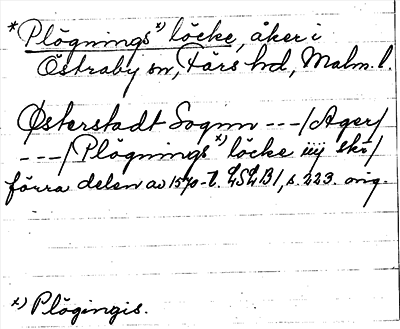 *Plögnings x) löcke, åker i
Östraby sn, Färs hd, Malm. l.
Østerstadt Sognn --- / Ager /
--- / Plögnings x) löcke iiij skr /
förra delen av 1570-t. LSLB1, s. 223. orig.
x) Plögingis.